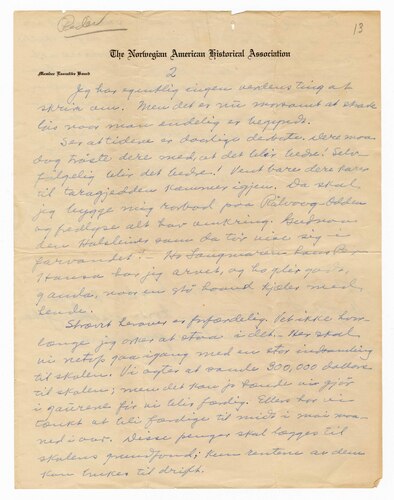 13
The Norwegian American Historical Association
Member Executive Board
2
Jeg har egentlig ingen verdens ting at
skrive om. Men det er vist at
løs naar man endelig er begyndt.
Ser at tiderne er daarlige derute. Dere maa
dog trøste dere med, at det blir bedre! Selv-
følgelig blir det bedre! Vent bare dere kar
til taragjedden kommer igjen. Da skal
jeg bygge mig rorbod paa
og fedlyse alt hav omkring. Gud naade
den Halsfending som da tør vise sig i
farvandet!
Hansa har jeg arvet, og
naar en stø haand hjelder med
lende.
Strævt er forfærdelig. Vet ikke hvor-
længe jeg orker at staa i det. Her skal
vi netop gaa igang med en stor indsamling
til skolen. Vi agter at samle 300,000 dollars
til skolen; men det kan jo hænde vi gjør
i før vi blir færdig. Ellers har vi
tænkt at bli færdige til midt i mai maa-
ned i aar. Disse penger skal lægges til
skolens grundfond; kun renten av dem
kan brukes til drift.